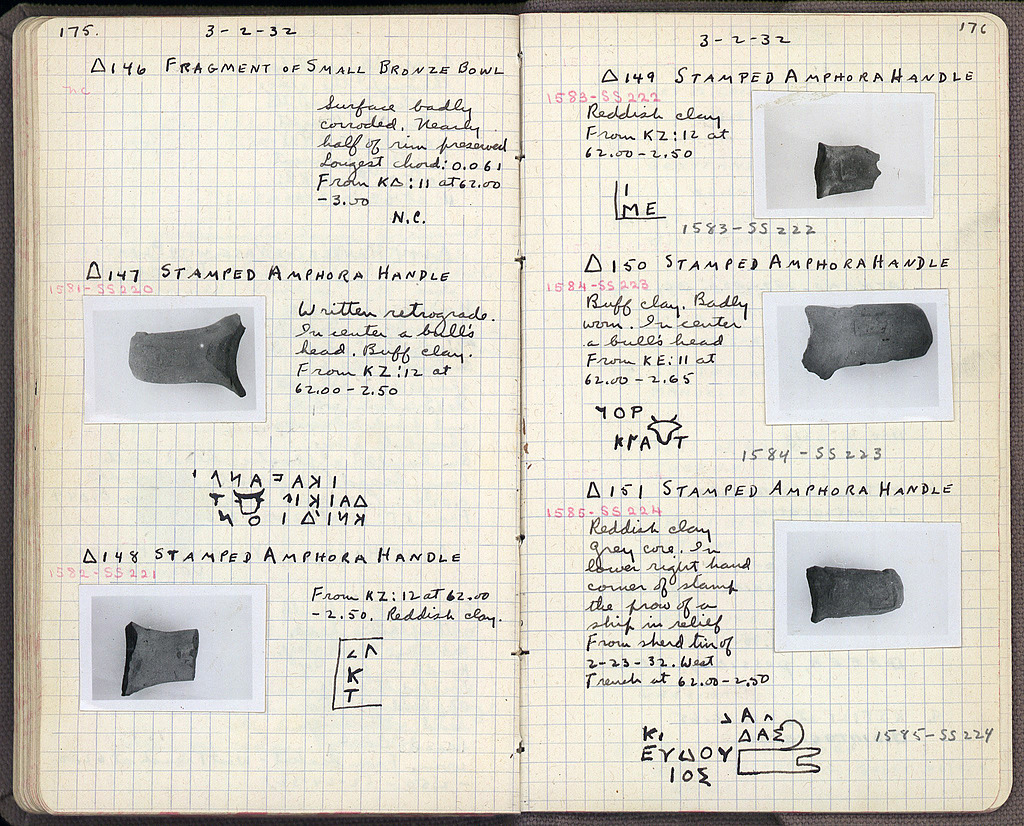 175.
3-2-32
Δ146 FRAGMENT OF SMALL BRONZE BOWL
nc
Surface badly
corroded. Nearly
half of rim preserved
Longest chord: 0.061
From ΚΔ:11 at 62.00
-3.00
N.C.
Δ147 STAMPED AMPHORA HANDLE
1581-SS220
Written retrograde.
In center a bull's
head. Buff clay.
From KZ:12 at
62.00-2.50
Δ148 STAMPED AMPHORA HANDLE
1582-SS221
From KZ:12 at 62.00
-2.50. Reddish clay.
Κ
Τ
176
3-2-32
Δ149 STAMPED AMPHORA HANDLE
1583-SS222
Reddish clay
From KZ:12 at
62.00-2.50
Ι
ΜΕ
1583-SS222
Δ150 STAMPED AMPHORA HANDLE
1584-SS223
Buff clay. Badly
worn. In center
a bull's head
From KE:11 at
62.00-2.65
ΟΡ
ΚΡΑ Τ
1584-SS223
Δ151 STAMPED AMPHORA HANDLE
1585-SS224
Reddish clay
grey core. In
lower right hand
corner of stamp
the prow of a
ship in relief
From sherd tin of
2-23-32. West
Trench at 62.00-2.50
Α
Κι ΔΑΣ
ΕΥΔΟΥ
ΙΟΣ
1585-SS224